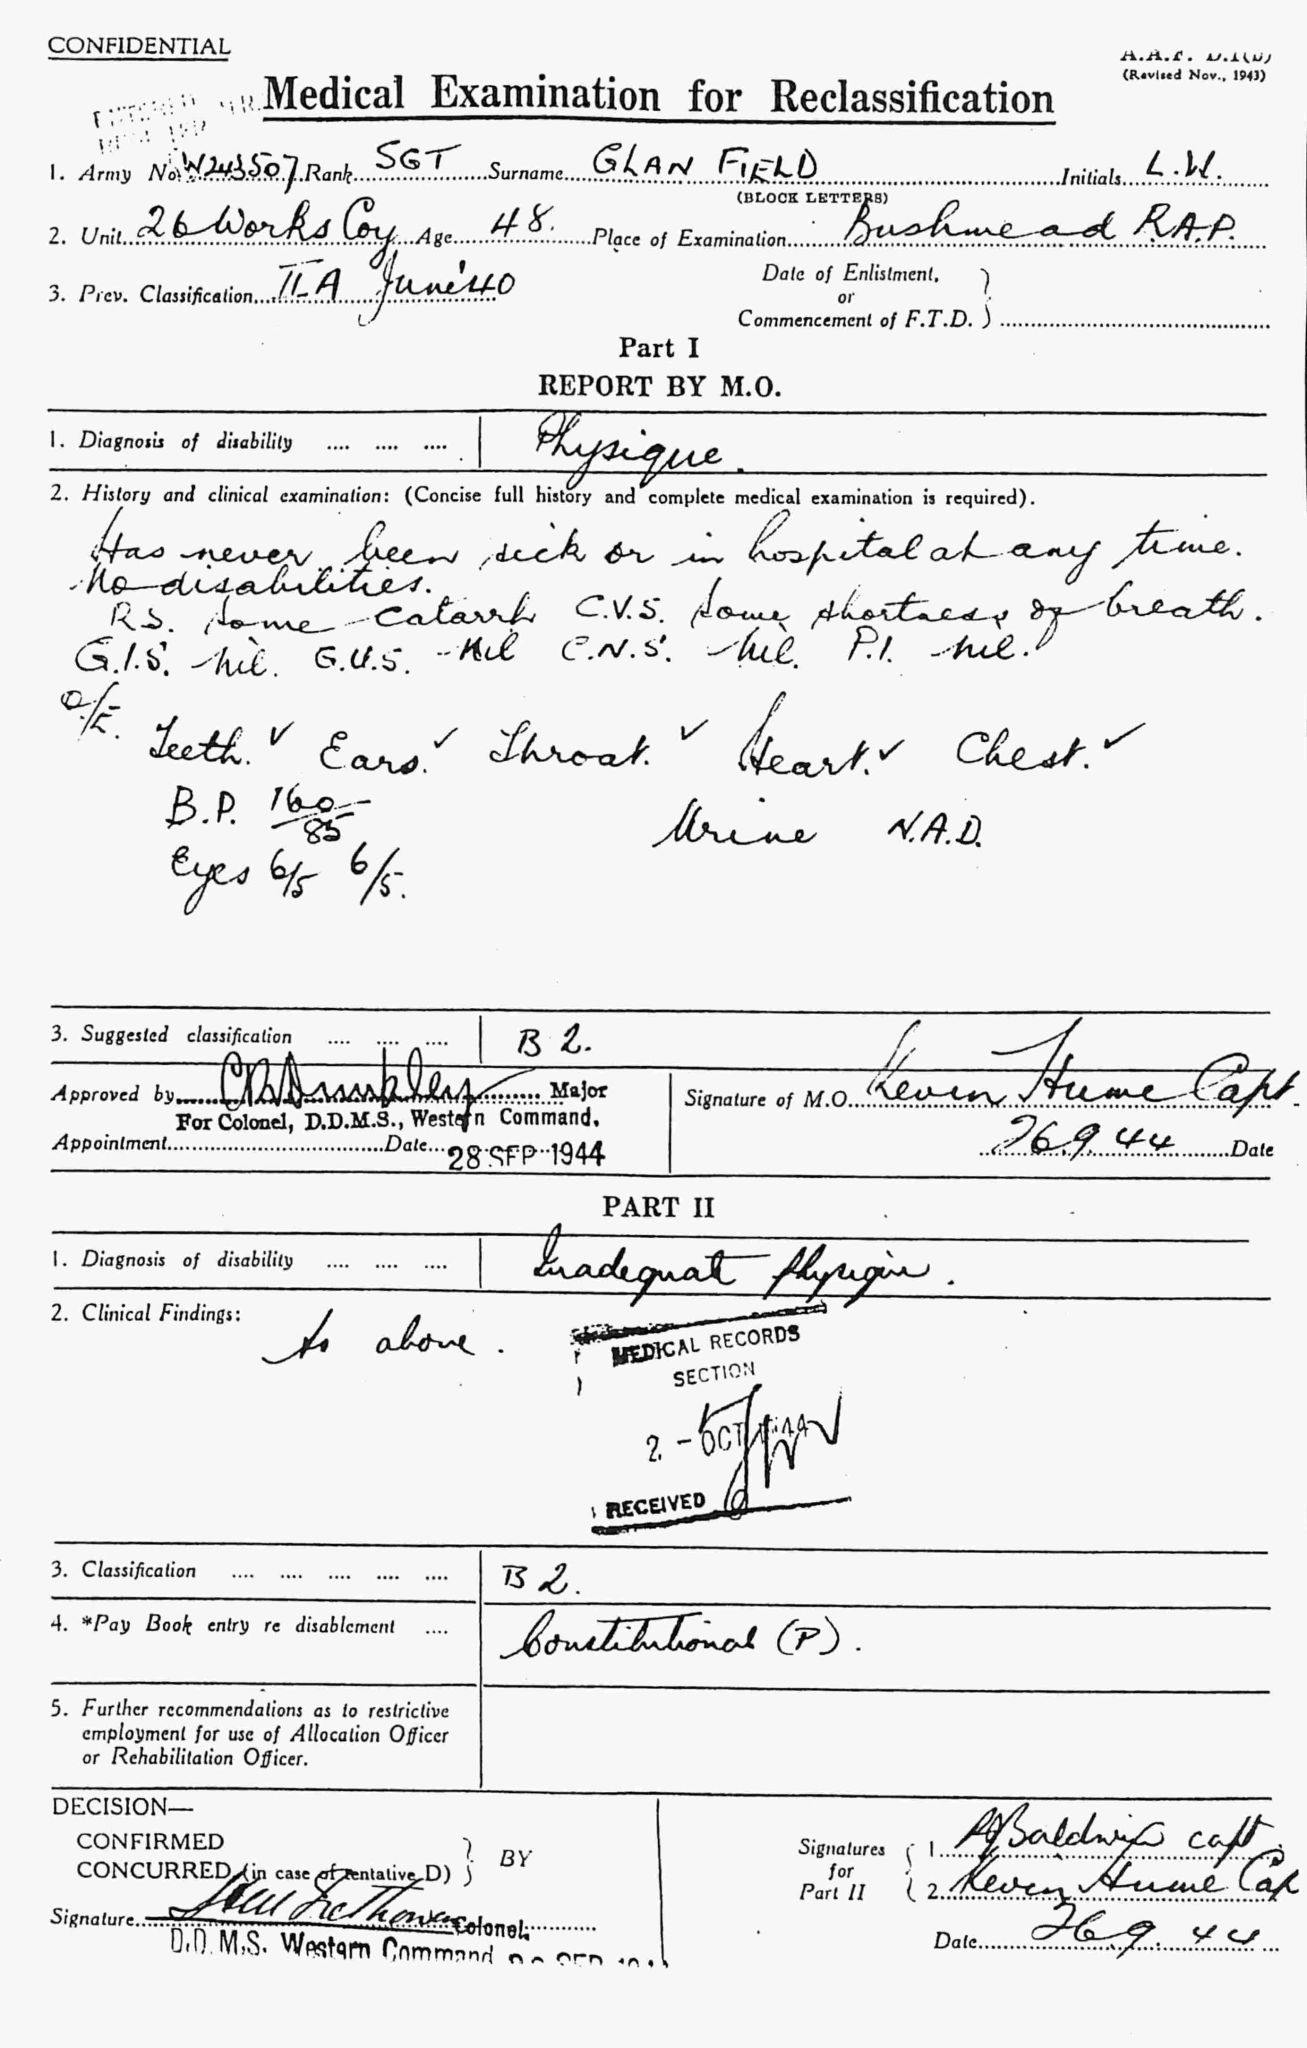 CONFIDENTIAL
A.A.F. D.1(B)
(Revised Nov., 1943)
Medical Examination for Reclassification
1. Army No. W243507 Rank SGT Surname GLAN FIELD Initials L.W.
(BLOCK LETTERS)
2. Unit 26 Works Coy Age 48. Place of Examination Bushmead R.A.P.
3. Prev. Classification II A June '40
Date of Enlistment,
or
Commencement of F.T.D.
Part I
REPORT BY M.O.
1. Diagnosis of disability .... .... .... Physique.
2. History and clinical examination: (Concise full history and complete medical examination is required).
Has never been sick or in hospital at any time.
No disabilities.
R.S. some catarrh C.V.S. some shortness of breath.
G.I.S. nil. G.U.S. - Nil C.N.S. nil. P.I. nil.
O/E. Teeth. ✓ Ears. ✓ Throat. ✓ Heart. ✓ Chest. ✓
B.P. 160/85 Urine N.A.D.
Eyes 6/5 6/5.
3. Suggested classification .... .... .... B 2.
Approved by Major
Signature of M.O. Kevin Hume Capt.
For Colonel, D.D.M.S., Western Command.
Appointment Date 28 SEP 1944
26.9.44 Date
PART II
1. Diagnosis of disability .... .... .... Inadequate physique.
2. Clinical Findings:
As above.
MEDICAL RECORDS
SECTION
2 - OCT 1944
RECEIVED
3. Classification .... .... .... .... .... B 2.
4. *Pay Book entry re disablement .... Constitutional (P).
5. Further recommendations as to restrictive
employment for use of Allocation Officer
or Rehabilitation Officer.
DECISION—
CONFIRMED
CONCURRED (in case of tentative D) BY
Signature Colonel.
D.D.M.S. Western Command
Signatures for Part II
1. Baldwin capt.
2. Kevin Hume Cap
Date 26.9.44